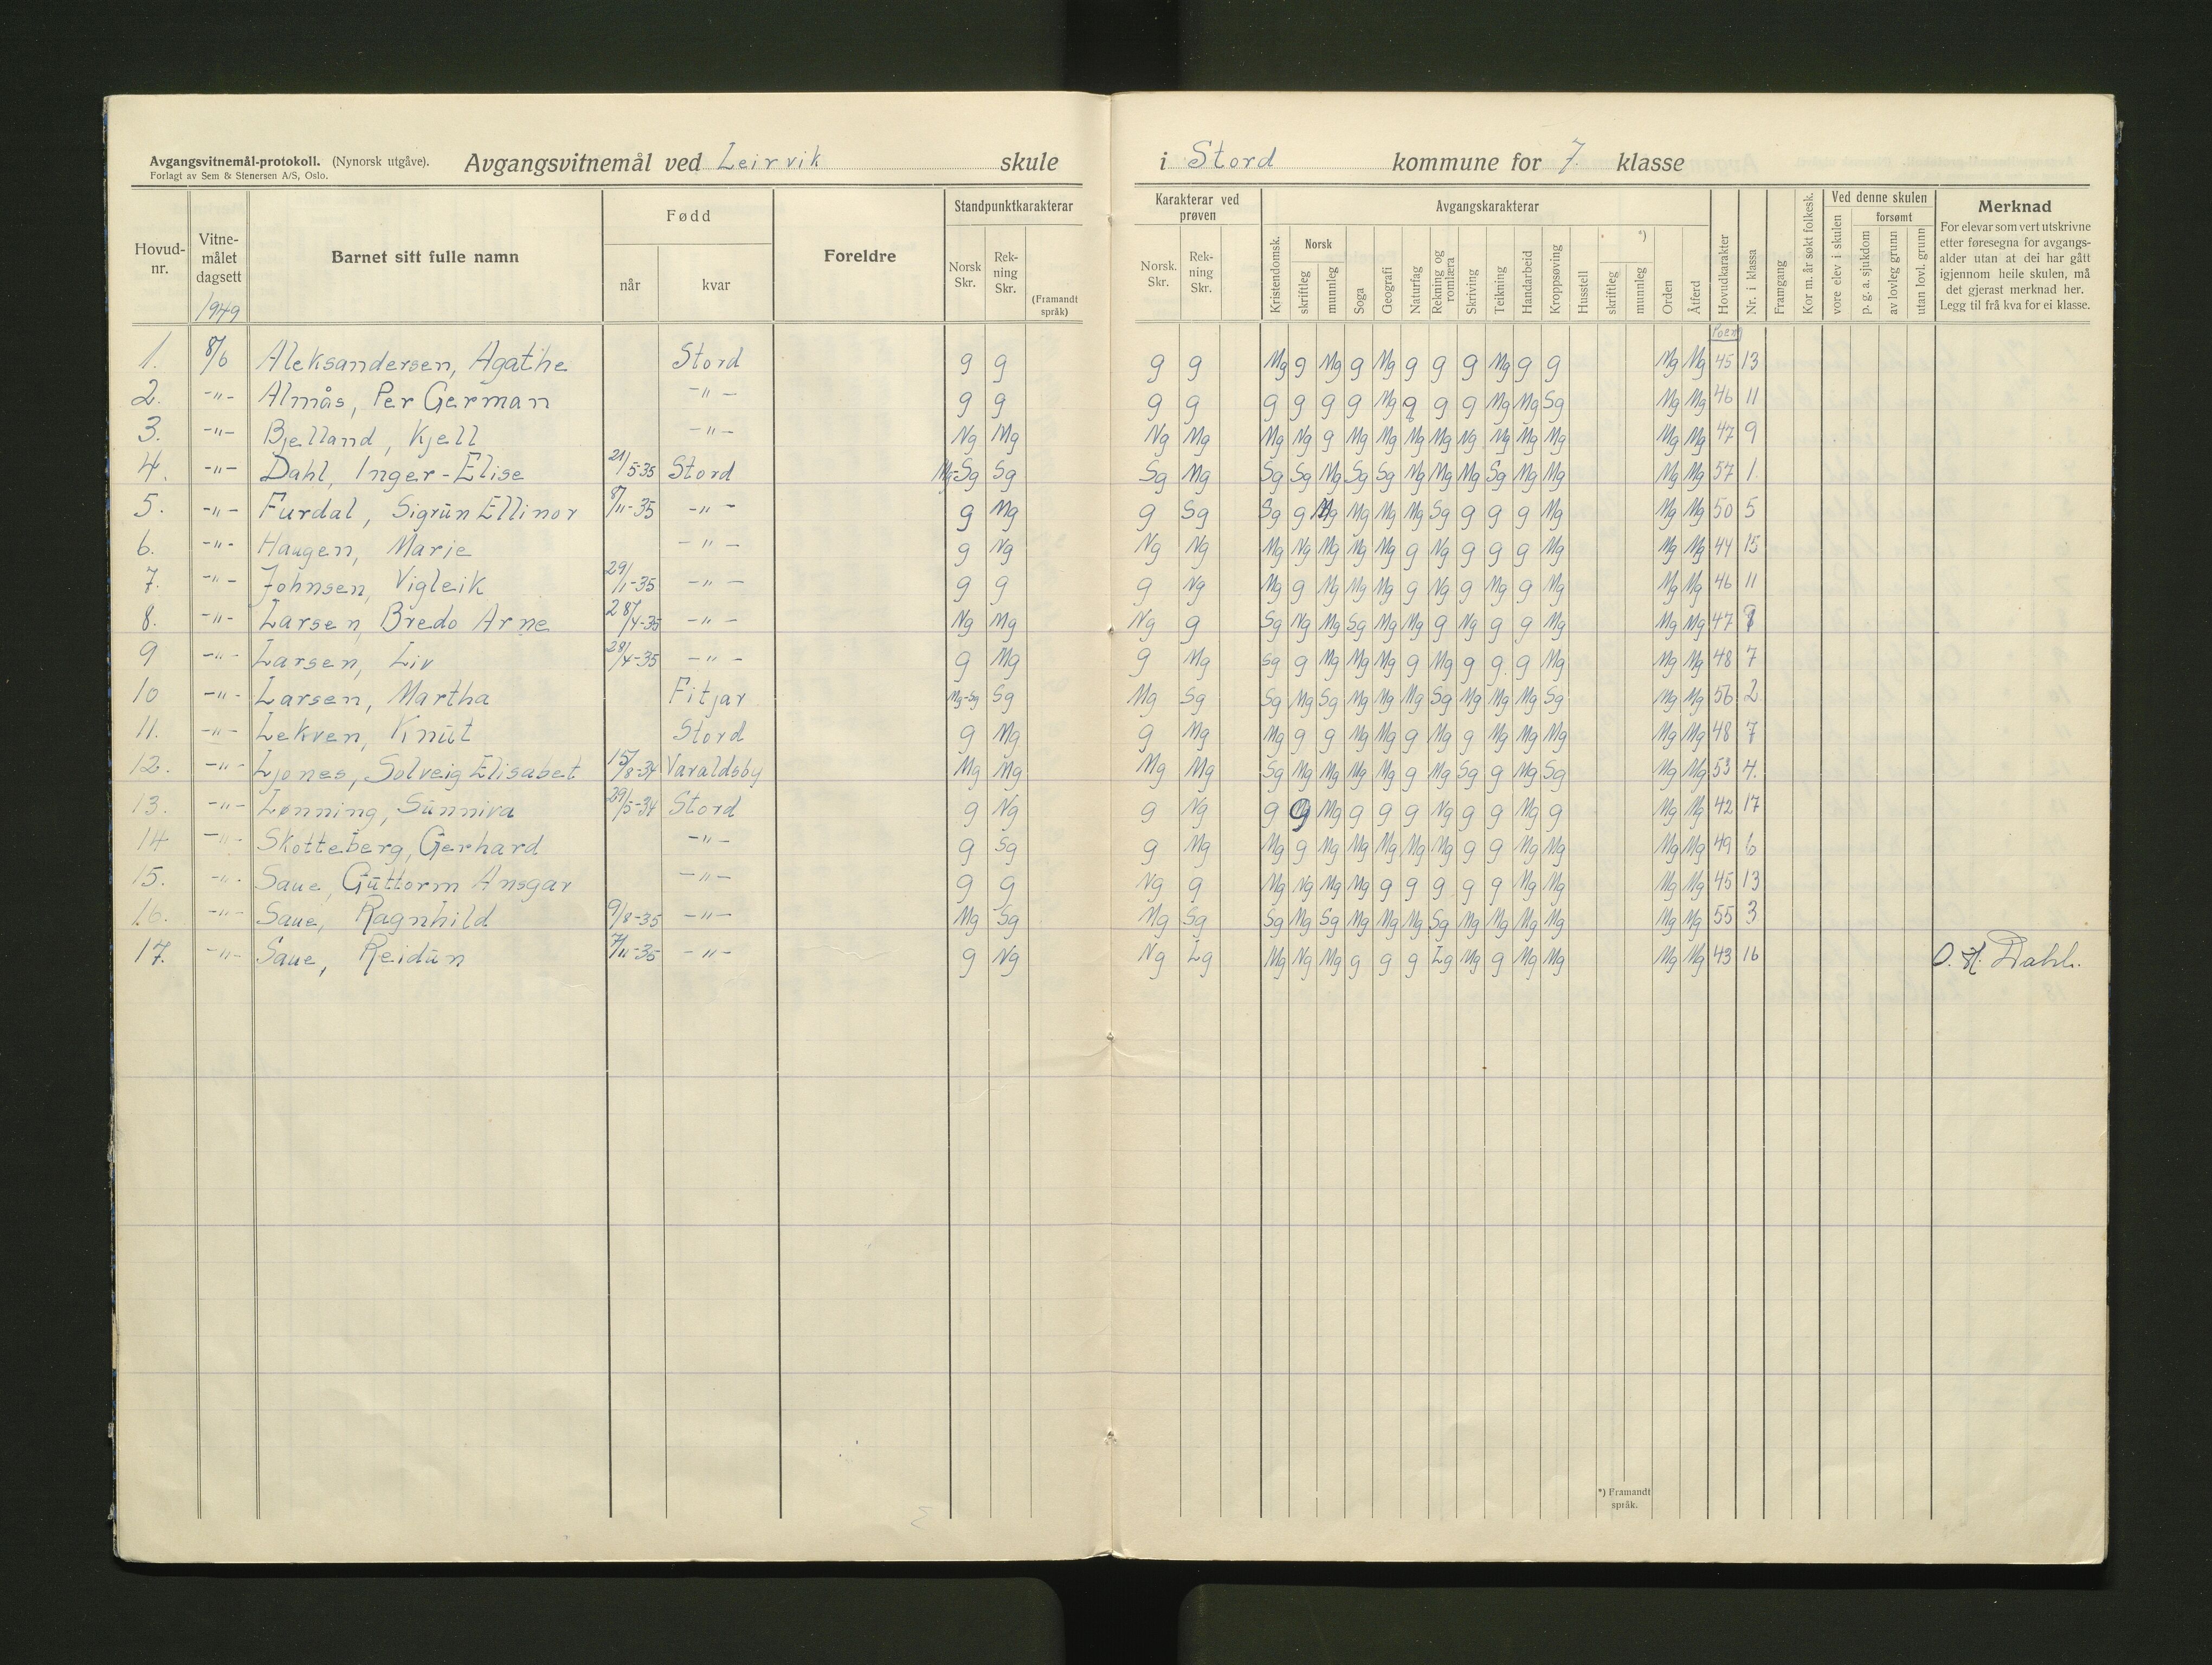 Avgangsvitnemål-protokoll. (Nynorsk utgåve). Avgangsvitnemål ved Leirvik skule i Stord kommune for 7. klasse
Forlagt av Sem & Stenersen A/S, Oslo.
Hovud-nr. Vitne-målet dagsett 1949 Barnet sitt fulle namn Fødd når kvar Foreldre Standpunktkarakterar Norsk Skr. Rek-ning Skr. (Framandt språk)
Karakterar ved prøven Norsk. Skr. Rek-ning Skr. Avgangskarakterar Kristendomsk. Norsk skriftleg munnleg Soga Geografi Naturfag Rekning og romlæra Skriving Teikning Handarbeid Kroppsøving Husstell *) skriftleg munnleg Orden Åtferd Hovudkarakter Nr. i klassa Framgang Kor m. år søkt folkesk. Ved denne skulen vore elev i skulen forsømt p. g. a. sjukdom av lovleg grunn utan lovl. grunn
Merknad
For elevar som vert utskrivne
etter føresegna for avgangs-
alder utan at dei har gått
igjennom heile skulen, må
det gjerast merknad her.
Legg til frå kva for ei klasse.
Poeng
1. 8/6 Aleksandersen, Agathe Stord g g g g Mg g Mg g Mg g g g Mg g g Mg Mg 45 13
2. -"- Almås, Per German -"- g g g g g g g g Mg g g g Mg Mg Sg Mg Mg 46 11
3. -"- Bjelland, Kjell -"- Ng Mg Ng Mg Mg Ng g Mg Mg Mg Mg Ng Mg Mg Mg Mg Mg 47 9
4. -"- Dahl, Inger-Elise 21/5-35 Stord Mg-Sg Sg Sg Mg Sg Sg Mg Sg Sg Mg Mg Mg Sg Mg Mg Mg Mg 57 1
5. -"- Furdal, Sigrun Ellinor 8/11-35 -"- g Mg g Sg Sg g Mg Mg Mg Mg Sg g g g Mg Mg Mg 50 5
6. -"- Haugen, Marie -"- g Ng Ng Ng Mg Ng Mg Mg Mg g Ng g g g Mg Mg Mg 44 15
7. -"- Johnsen, Vigleik 29/1-35 -"- g g g Ng Mg g Mg Mg Mg g Ng g Mg g Mg Mg Mg 46 11
8. -"- Larsen, Bredo Arne 28/4-35 -"- Ng Mg Ng g Sg Ng Mg Sg Mg Mg g Ng g g Mg Mg Mg 47 9
9 -"- Larsen, Liv 28/4-35 -"- g Mg g Mg Sg g Mg Mg Mg g Mg g g g Mg Mg Mg 48 7
10 -"- Larsen, Martha Fitjar Mg-Sg Sg Mg Sg Sg Mg Sg Mg Mg Mg Sg Mg Mg Mg Sg Mg Mg 56 2
11. -"- Lekven, Knut Stord g Mg g Mg Mg g g Mg Mg g Mg g Mg Mg Mg Mg Mg 48 7
12. -"- Ljones, Solveig Elisabet 15/8-34 Varaldsøy Mg Mg Mg Mg Sg Mg Mg Mg Mg g Mg Sg g Mg Sg Mg Mg 53 4.
13. -"- Lønning, Sunniva 29/5-34 Stord g Ng g Ng g g Mg g g g Ng g g Mg g Mg Mg 42 17
14 -"- Skotteberg, Gerhard -"- g Sg g Mg Mg g Mg Mg Mg Mg Mg g g Mg Mg Mg Mg 49 6
15. -"- Saue, Guttorm Ansgar -"- g g Ng g Mg Ng Mg Mg g g g g g Mg Mg Mg Mg 45 13
16. -"- Saue, Ragnhild 9/8-35 -"- Mg Sg Mg Sg Sg Mg Sg Mg Mg Mg Sg Mg Mg Mg Mg Mg Mg 55 3
17. -"- Saue, Reidun 7/11-35 -"- g Ng Ng Lg Mg Ng Mg g g g Lg Mg g Mg Mg Mg Mg 43 16 O. H. Dahl.
*) Framandt
språk.